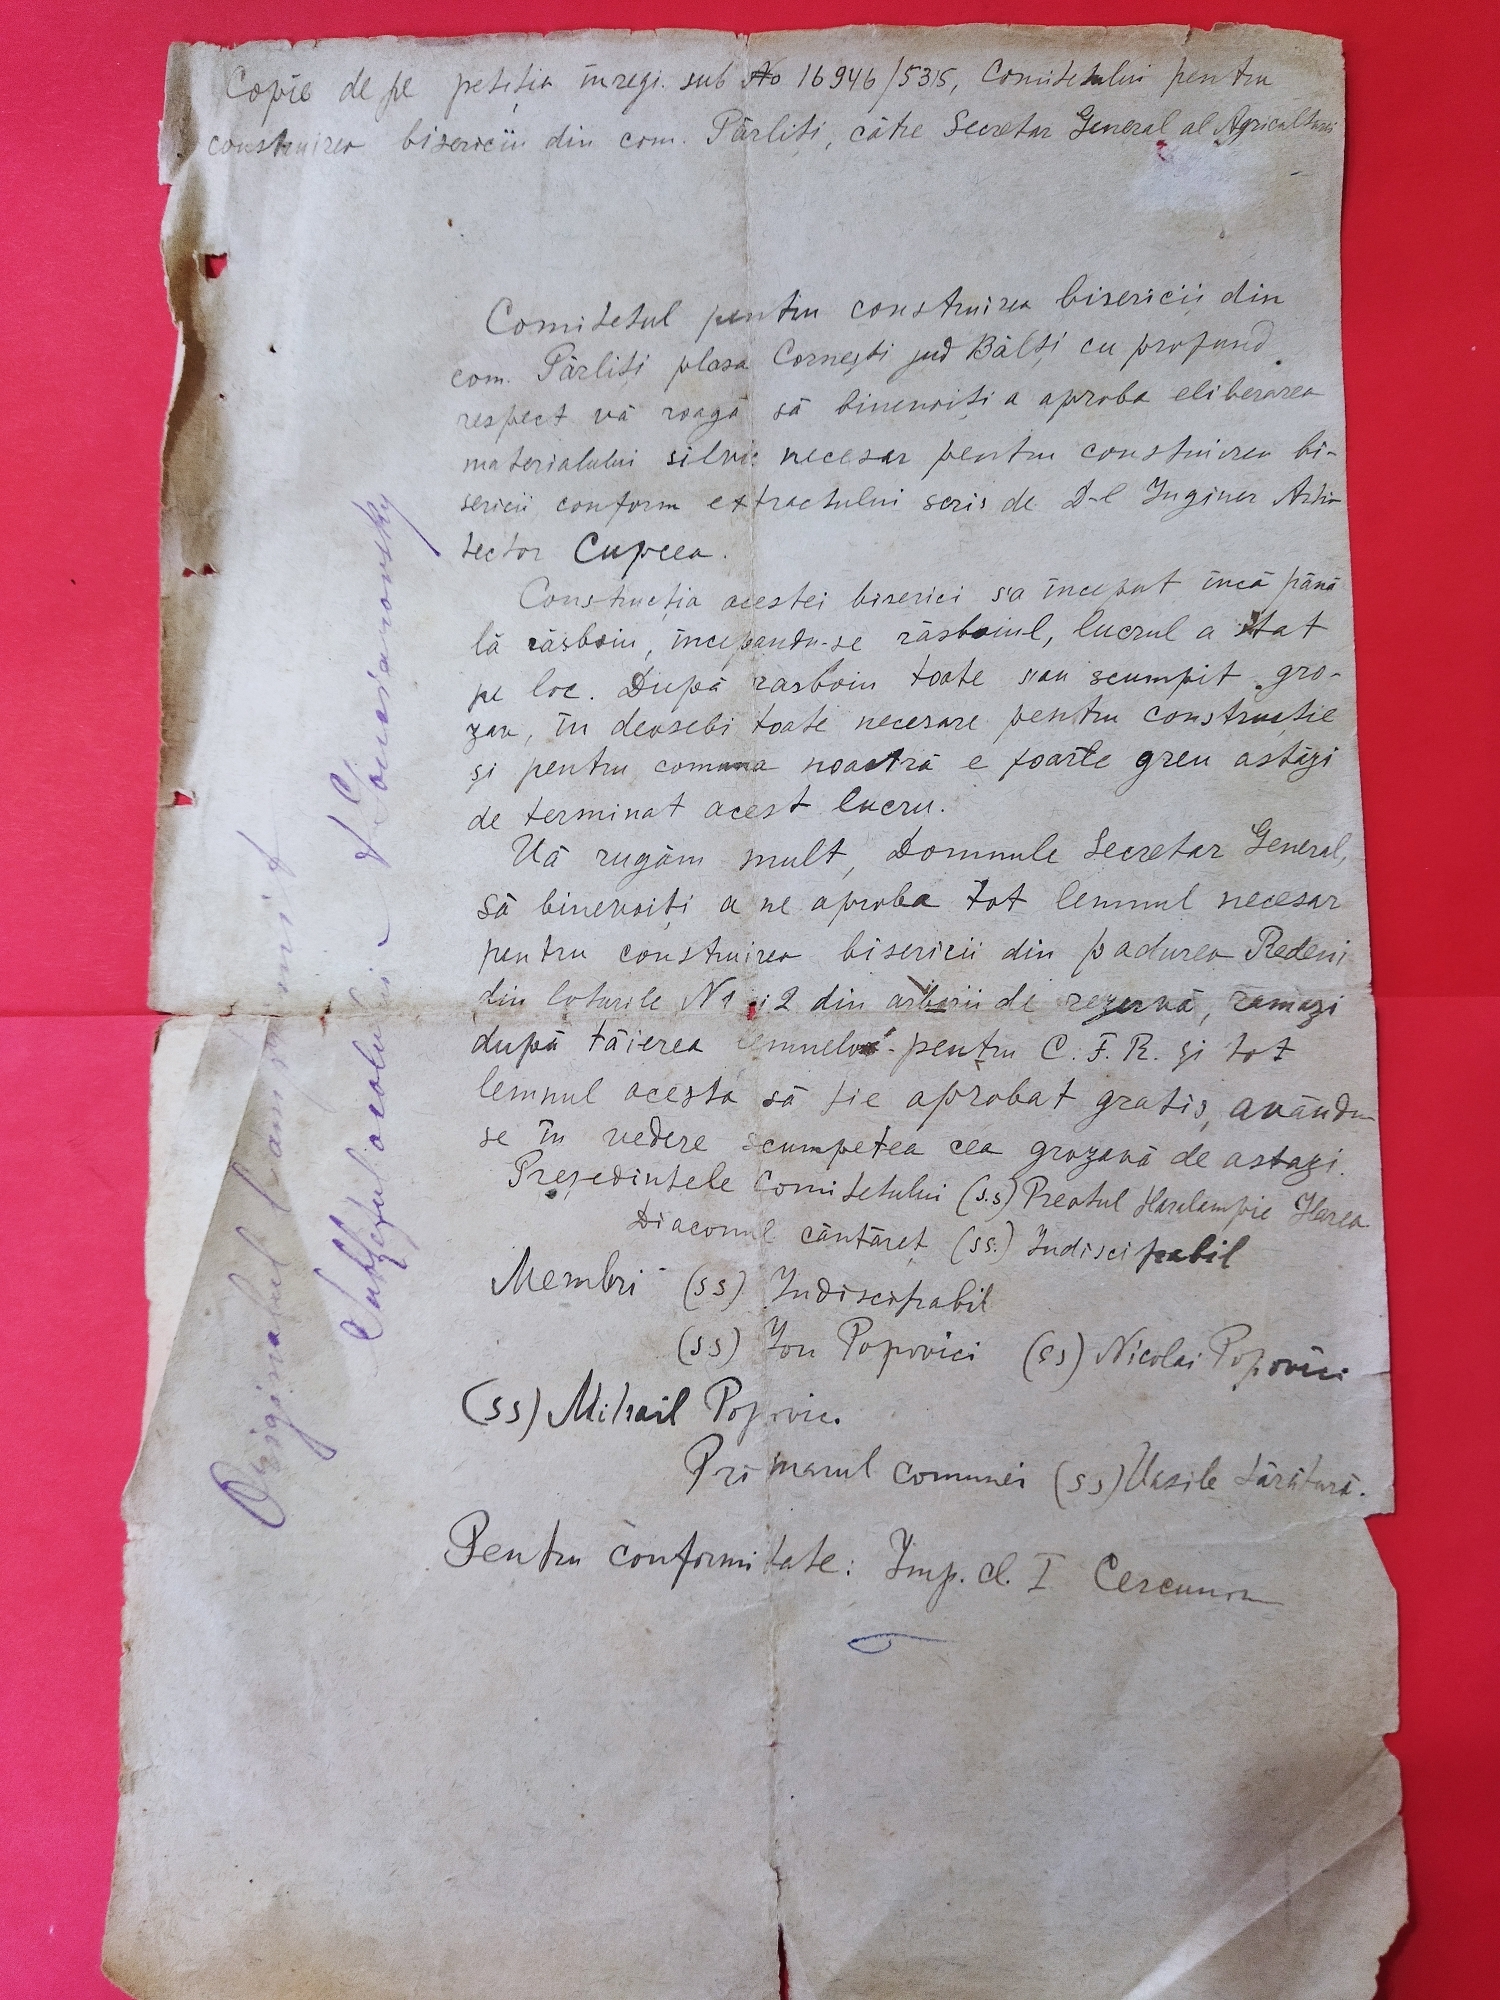 Copie de pe petiția înregi. sub No 16946/535, Comitetului pentru
construirea bisericii din com. Pârliți, către Secretar General al Agriculturii
Comitetul pentru construirea bisericii din
com. Pârliți plasa Cornești jud Bălți cu profund
respect vă roagă să binevoiți a aproba eliberarea
materialului silvic necesar pentru construirea bi-
sericii conform extractului scris de D-l Inginer Arhi-
tector Cupcea.
Construcția acestei biserici s'a început încă până
la răsboiu, începandu-se răsboiul, lucrul a stat
pe loc. După rasboiu toate s'au scumpit gro-
zav, în deosebi toate necesare pentru construcție
și pentru comuna noastră e foarte greu astăzi
de terminat acest lucru.
Vă rugăm mult, Domnule Secretar General,
să binevoiți a ne aproba tot lemnul necesar
pentru construirea bisericii din padurea Redeni
din loturile N1 i 2 din arborii de rezervă, ramași
după tăierea lemnelor pentru C.F.R. și tot
lemnul acesta să fie aprobat gratis, avându-
se în vedere scumpetea cea grozavă de astazi.
Președintele Comitetului (s.s) Preotul Haralampie Harea
Diaconul cântăreț (ss.) Indiscifrabil
Membri (ss) Indiscifrabil
(ss) Ion Popovici (ss) Nicolai Popovici
(ss) Mihail Popovici
Primarul comunei (ss) Vasile Tărâțară.
Pentru conformitate: Imp. cl. I
Originalul l'am primit
Subșeful ocolului